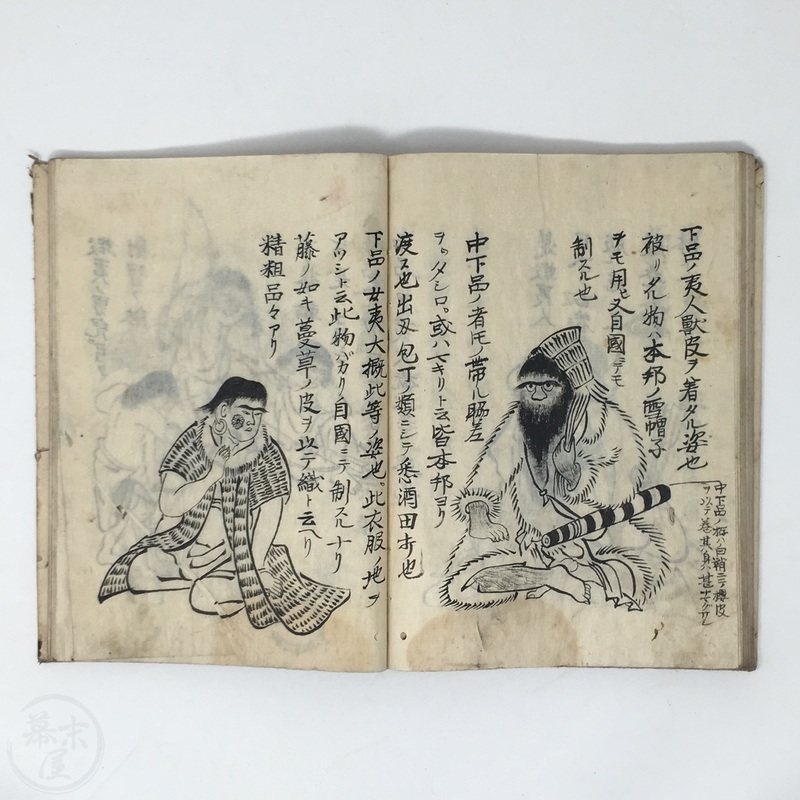 下品ノ夷人獣皮ヲ着タル姿也
被リタル物ハ本邦ノ雪帽子
ヲモ用ヒ又自國ニテモ
制スル也
中下品ノ者ノ帯ル脇差
ヲタシロ或ハマキリト云皆本邦ヨリ
渡ス也出刃包丁ノ類ニシテ悉酒田打也
中下品ノハ白鞘ニテ櫻皮
ヲ以テ巻其身ハ甚
下品ノ女夷大概此等ノ姿也此衣服ノ地ヲ
アツシト云此物バカリ自國ニテ制スルナリ
藤ノ如キ蔓草ノ皮ヲ以テ織ト云ヘリ
精粗品々アリ
幕末屋